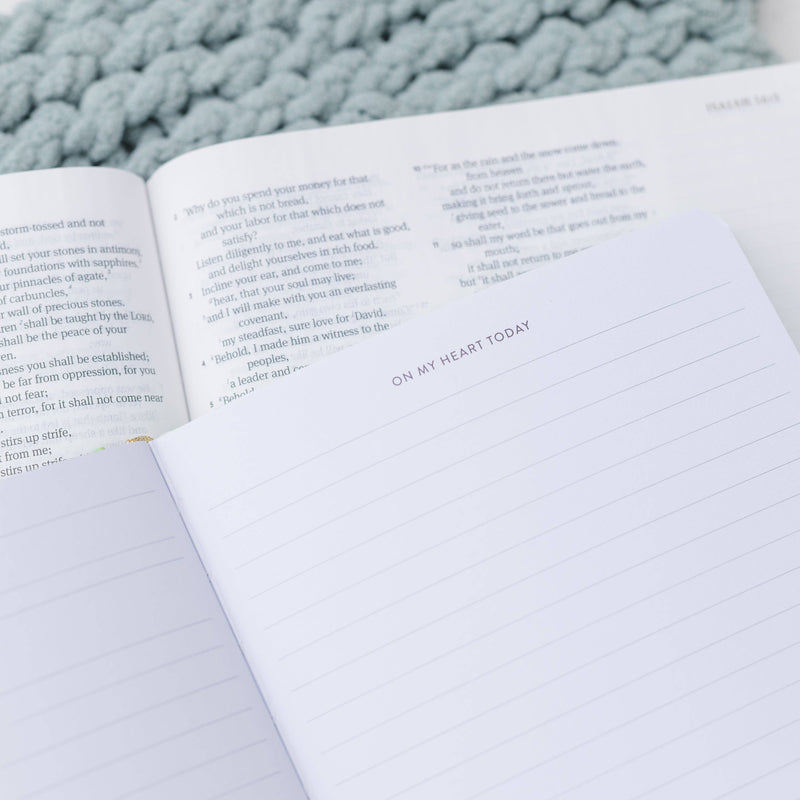 storm-tossed and not
d,
ill set your stones in antimony,
foundations with sapphires.
ur pinnacles of agate,
of carbuncles,
wall of precious stones.
ren shall be taught by the LORD,
shall be the peace of your
ren.
sness you shall be established;
be far from oppression, for you
not fear;
terror, for it shall not come near
stirs up strife,
from me;
stirs up strife
ISAIAH
2 "Why do you spend your money for that
which is not bread,
and your labor for that which does not
satisfy?
Listen diligently to me, and eat what is good,
and delight yourselves in rich food.
3 Incline your ear, and come to me;
hear, that your soul may live;
and I will make with you an everlasting
covenant,
my steadfast, sure love for David.
4 Behold, I made him a witness to the
peoples,
a leader and co
5 Behold
10 "For as the rain and the snow come down
from heaven
and do not return there but water the earth,
making it bring forth and sprout,
giving seed to the sower and bread to the
eater,
11 so shall my word be that goes out from my
mouth;
it shall not return to me
but it shall
ON MY HEART TODAY